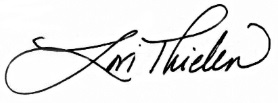 Lori Thielen